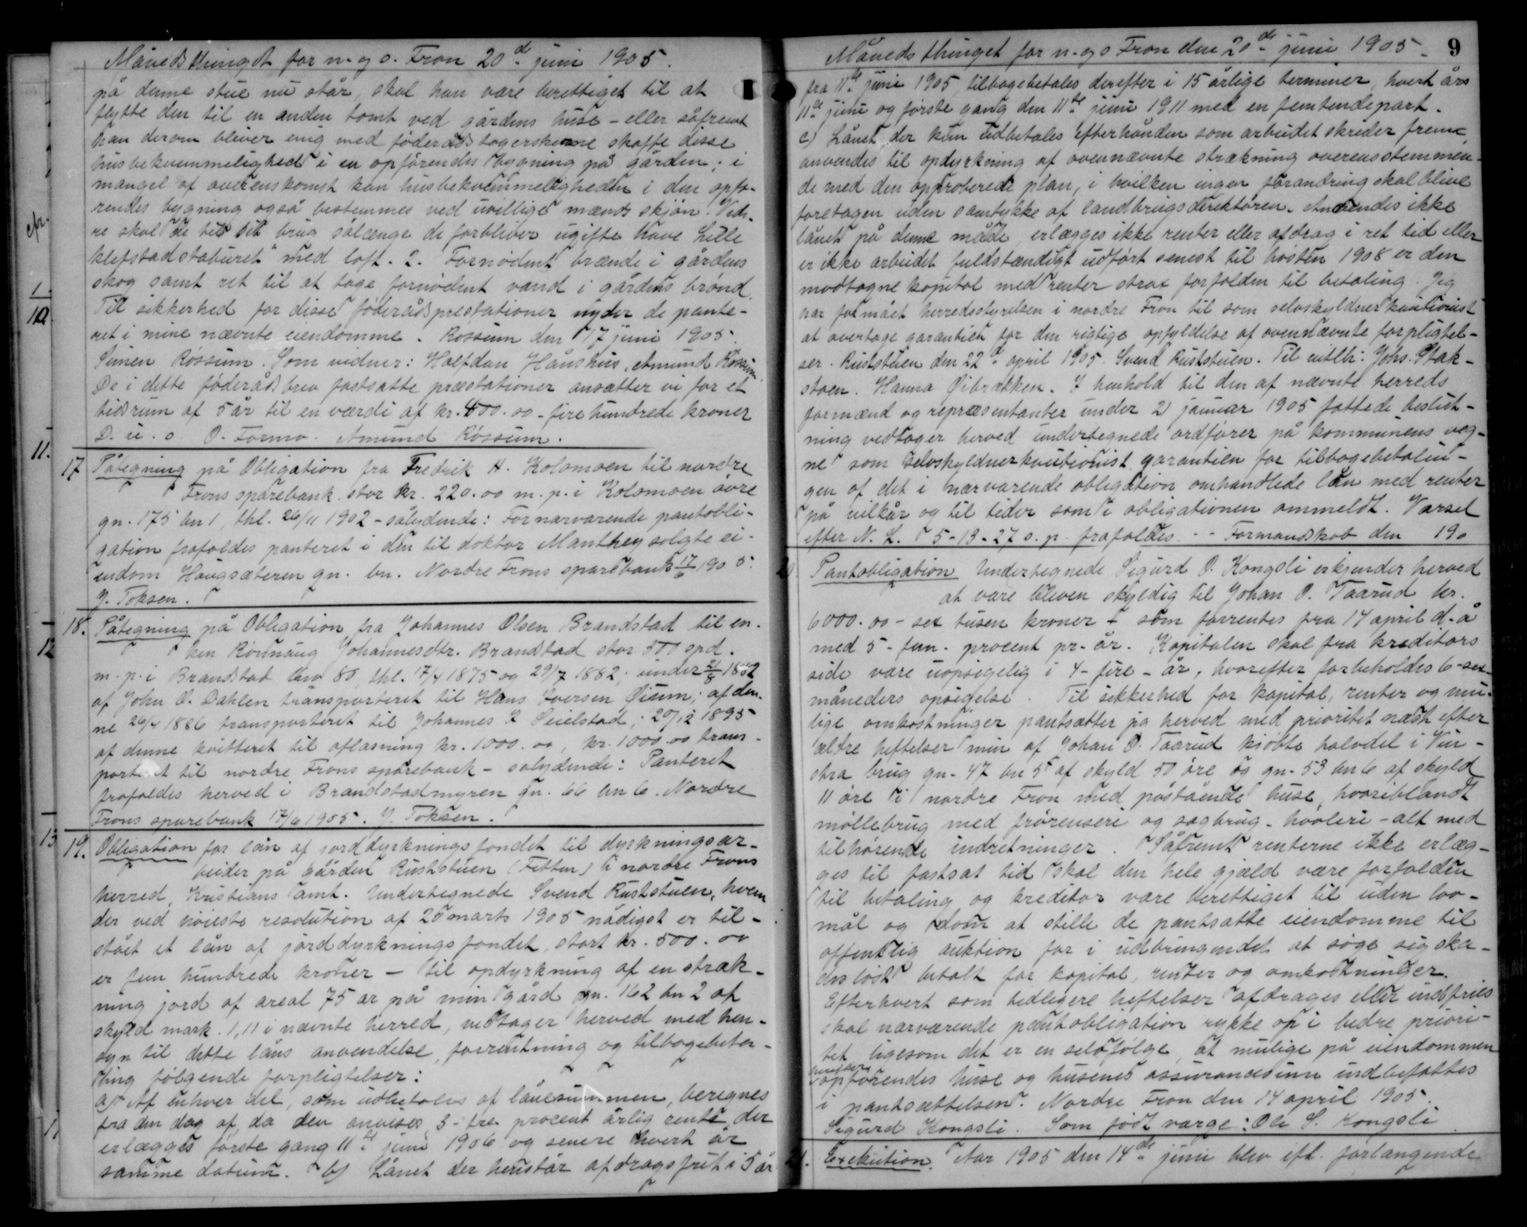 Månedsthinget for n. og s. Fron 20d juni 1905.
på denne stue nu står, skal han være berettiget til at
flytte den til en anden tomt ved gårdens huse - eller såfremt
han derom bliver enig med føderådstagerskerne skaffe disse
husbekvemmelighed i en opførendes bygning på gården; i
mangel af overenskomst kan husbekvemmeligheden i den opfø-
rendes bygning også bestemmes ved uvillige mænds skjøn. Vide-
re skal de til sit brug sålænge de forbliver ugifte have Lille
klefstadstaburet med loft. 2. Fornødent brænde i gårdens
skog samt ret til at tage fornødent vand i gårdens brønd.
Til sikkerhed for disse føderådspræstationer nyder de pante-
ret i mine nævnte eiendomme. Rossum den 17 juni 1905.
Simen Rossum. Som vidner: Halfdan Hånshus, Amund Rossum.
De i dette føderådsbrev fastsatte præstationer ansætter vi for et
tidsrum af 5 år til en værdi af kr. 400.00 - fire hundrede kroner
D. u. s. O. Formo. Amund Rossum.
17 Påtegning på Obligation fra Fredrik H. Kolomoen til nordre
Frons sparebank stor kr. 220.00 m. p. i Kolomoen øvre
gn. 175 bn 1, thl. 26/11 1902 - sålydende: For nærværende pantobli-
gation frafaldes panteret i den til doktor Manthey solgte ei-
endom Haugsæteren gn. bn. Nordre Frons sparebank 17/6 1905.
J. Toksen.
18. Påtegning på Obligation fra Johannes Olsen Brandstad til en-
ken Rønnaug Johannesdtr. Brandstad stor 500 spd.
m. p. i Brandstad lno 80, thl. 17/4 1875 og 29/7 1882; under 21/8 1882
af John O. Dahlen transporteret til Hans Iversen Oium; af den-
ne 29/4 1886 transporteret til Johannes R Øielstad; 20/12 1895
af denne kvitteret til aflæsning kr. 1000.00, kr. 1000.00 trans-
porteret til nordre Frons sparebank - sålydende: Panteret
frafaldes herved i Brandstadmyren gn. 66 bn 6. Nordre
Frons sparebank 17/6 1905. J. Toksen.
19. Obligation for lån af jorddyrkningsfondet til dyrkningsar-
beider på Gården Ruststuen (Fetten) i nordre Frons
herred, Kristians amt. Undertegnede Svend Ruststuen, hvem
der ved høieste resolution af 25 marts 1905 nådigst er til-
stået et lån af jorddyrkningsfondet, stort kr. 500.00
er fem hundrede kroner - til opdyrkning af en stræk-
ning jord af areal 75 ar på min gård gn. 162 bn 2 af
skyld mark. 1,11 i nævnte herred, vedtager herved med hen-
syn til dette låns anvendelse, forrentning og tilbagebeta-
ling følgende forpligtelser:
a) Af enhver del, som udbetales af lånesummen, beregnes
fra den dag af, da den anvises, 3 - tre procent årlig rente, der
erlægges første gang 11te juni 1906 og senere hvert år
samme datum. b) Lånet der henstår afdragsfrit i 5 år
Måneds thinget for n. og s Fron den 20de juni 1905. 9
fra 11te juni 1905, tilbagebetales derefter i 15 årlige terminer, hvert års
11te juni og første gang den 11te juni 1911 med en femtendepart.
c) Lånet, der kun udbetales efterhånden som arbeidet skreder frem,
anvendes til opdyrkning af ovennævnte strækning overensstemmen-
de med den approberede plan, i hvilken ingen forandring skal blive
foretagen uden samtykke af landbrugsdirektøren. Anvendes ikke
lånet på denne måde, erlægges ikke renter eller afdrag i ret tid eller
er ikke arbeidet fuldstændigt udført senest til høsten 1908 er den
modtagne kapital med renter strax forfalden til betaling. Jeg
har formået herredsstyrelsen i nordre Fron til som selvskyldnerkautionist
at overtage garantien for den rigtige opfyldelse af ovennævnte forpligtel-
ser. Ruststuen den 22d april 1905 Svend Ruststuen. Til vitth: Johs. Stak-
stoen. Hanna Gibrækken. I henhold til den af nævnte herreds
formænd og repræsentanter under 21 januar 1905 fattede beslut-
ning vedtager herved undertegnede ordfører på kommunens veg-
ne som selvskyldnerkautionist garantien for tilbagebetalin-
gen af det i nærværende obligation omhandlede lån med renter
på vilkår og til tider som i obligationen ommeldt. Varsel
efter N. L. 5-13-27 o. p. frafaldes. - - Formandskab den 190
20. Pantobligation Undertegnede Sigurd O. Kongsli erkjender herved
at være bleven skyldig til Johan O. Taarud kr.
6000.00 - sex tusen kroner - som forrentes fra 14 april d. å
med 5 - fem - procent pr. år. Kapitalen skal fra kreditors
side være uopsigelig i 4 - fire - år, hvorefter forbeholdes 6 - sex
måneders opsigelse. Til sikkerhed for kapital, renter og mu-
lige omkostninger pantsætter jeg herved med prioritet næst efter
ældre heftelser min af Johan O. Taarud kjøbte halvdel i Vin-
stra brug gn. 47 bn 5 af skyld 50 øre og gn. 53 bn 6 af skyld
11 øre i nordre Fron med påstående huse, hvoriblandt
møllebrug med frørenseri og sagbrug - høvleri - alt med
tilhørende indretninger. Såfremt renterne ikke erlæg-
ges til fastsat tid skal den hele gjæld være forfalden
til betaling og kreditor være berettiget til uden lov-
mål og dom at stille de pantsatte eiendomme til
offentlig auktion for i udbringendet at søge sig ska-
desløst betalt for kapital, renter og omkostninger.
Efterhvert som tidligere heftelser afdrages eller indfries
skal nærværende pantobligation rykke op i bedre priori-
tet, ligesom det er en selvfølge, at mulige på eiendommen
herefter
opførendes huse og husenes assurancesum indbefattes
i pantsættelsen. Nordre Fron den 14 april 1905.
Sigurd Kongsli. Som født værge: Ole S. Kongsli.
21. Exekution. Aar 1905 den 14de juni blev eft. forlangende